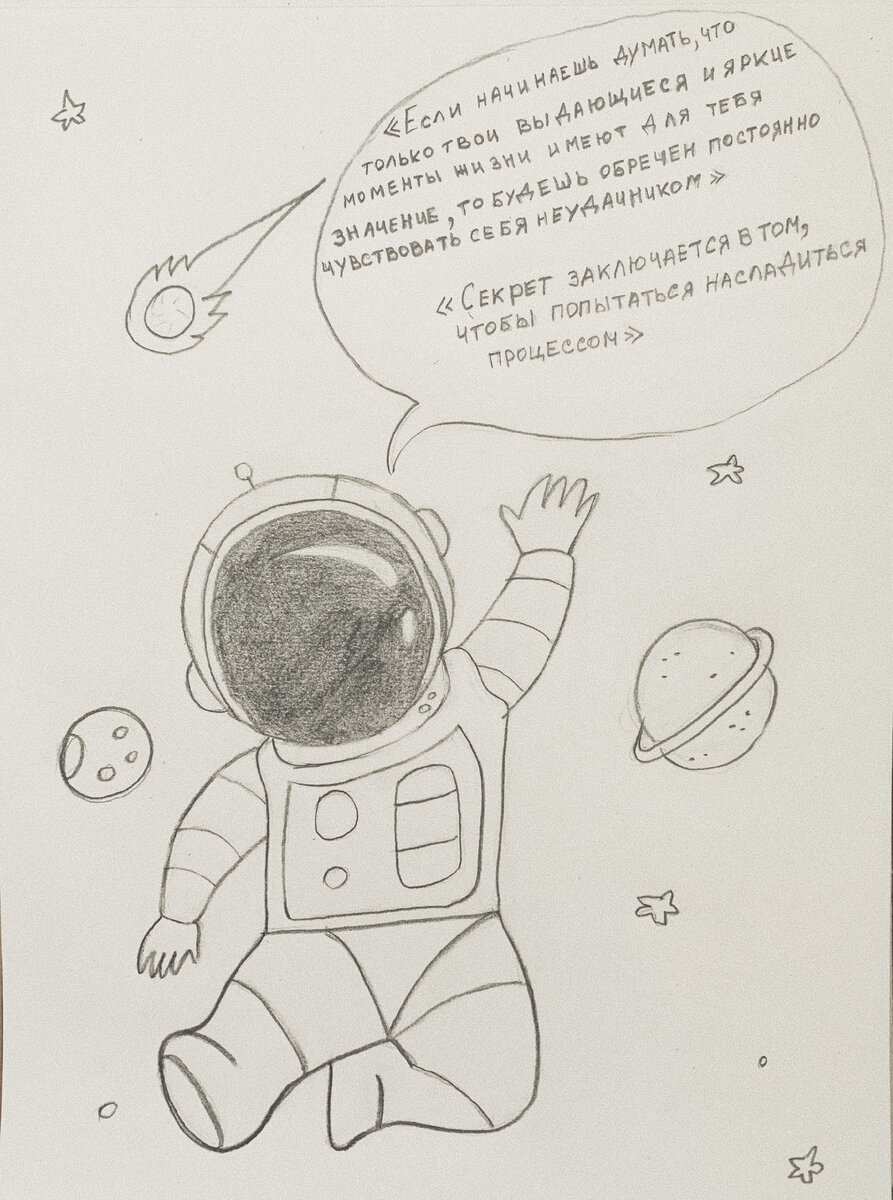 «Если начинаешь думать, что
только твои выдающиеся и яркие
моменты жизни имеют для тебя
значение, то будешь обречен постоянно
чувствовать себя неудачником»
«Секрет заключается в том,
чтобы попытаться насладиться
процессом»